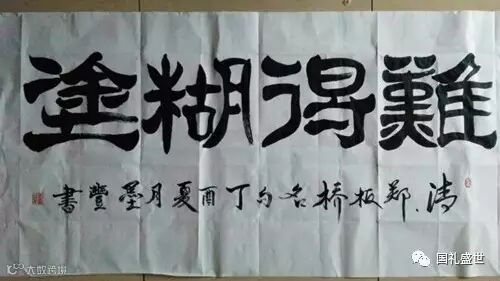 難得糊塗
清郑板橋名句丁酉夏月墨豐書
大数跨境
国礼盛世